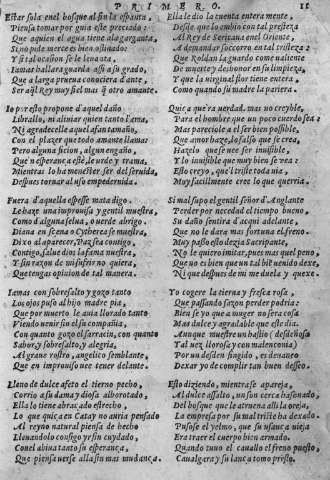 PRIMERO. 11
Estar sola en el bosque al fin la espanta,
Piensa tomar por guia este preciado:
Que aquien el agua tiene a la garganta,
Si no pide merced es bien obstinado:
Y si tal ocasion se le levanta,
Iamas hallara guarda assi a su grado,
Que a larga prueua conociera d'ante,
Ser aql Rey muy fiel mas q otro amante.
No por esto propone d'aquel daño
Librallo, ni aliuiar quien tanto l'ama,
Ni agradecelle aquel afan tamaño,
Con el plazer que todo amante llama:
Pero alguna ficion, algun engaño,
Que'n esperança esté, le vrde y trama,
Mientras lo ha menester ser del seruida,
Despues tornar al vso empedernida.
Fuera d'aquella espessa mata digo.
Lehaze vna improuisa y gentil muestra,
Como d'alguna selua, o verde abrigo.
Diana en scena o Cytherea se muestra,
Dixo al aparecer, Paz sea contigo,
Contigo salue dios la fama nuestra,
Y sin razon de mi siniestro quiera
Que tengas opinion de tal manera.
Iamas con sobresalto y gozo tanto
Los ojos puso al hijo madre pia,
Que por muerto le auia llorado tanto
Viendo venir sin el su compañia,
Con quanto gozo el sarracin, con quanto
Sabor, y sobresalto, y alegria,
Al grane rostro, angelico semblante,
Que en improuiso vee tener delante.
Lleno de dulce afeto el tierno pecho,
Corrio a su dama y diosa alborotado,
Ella lo tiene abraçado estrecho,
Lo que quiça en Catay no auria pensado
Al reyno natural piensa de hecho
Lleuandolo consigo yr sin cuydado,
Conel abiua tanto su esperança,
Que piensa verse alla sin mas mudança.
Ella le dio la cuenta entera mente,
Desde que lo embio con tal presteza
Al Rey de Sericana en el Oriente,
A demandar soccorro en tal tristeza:
Que Roldan la guardo como valiente
De muerte y deshonor en su limpieza,
Y que la virginal flor tiene entera,
Como quando su madre la pariera.
Quiça que'ra verdad, mas no creyble,
Para el hombre que vn poco cuerdo sea:
Mas pareciole a el ser bien possible,
Que amor haze, lo falso que se crea,
Hazelo que se vee ser inuisible,
Y lo inuisible que muy bien se vea:
Esto creyo, que'l triste toda via,
Muy facilmente cree lo que querria.
Si mal supo el gentil señor d'Anglante
Perder por necedad el tiempo bueno,
Su daño sentira d'acqui adelante,
Que no le dara mas fortuna el freno:
Muy passo esto dezia Sacripante,
No le quiero imitar, pues mas que peno,
Que vn o bien que vn tal bil uenido dexe,
Ni que despues de mi me duela y quexe.
Yo cogere la tierna y fresca rosa,
Que passando sazon perder podria:
Bien se yo que a muger no sera cosa
Mas dulce y agradable que este dia.
Aunque muestre vn baibio: desdeñosa
Tal vez, llorosa y con malenconia)
Por vn desden fingido, es denaneo
Dexar yo de complir tan buen desseo.
Esto diziendo, mientras se apareja,
Al dulce assalto, vn son cerca ha sonado,
Del bosque que le atruena assi la oreja,
La empresa de su mal triste ha dexado.
Pusose el yelmo, que su vsança vieja
Era traer el cuerpo bien armado.
Quando tuuo el cauallo el freno puesto,
Caualgara y su lança tomo presto.